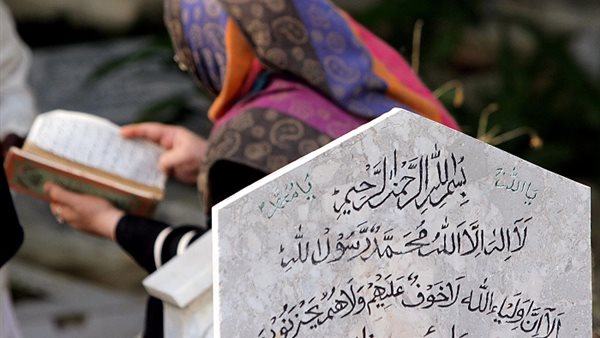 يا الله
يا محمد
بسم الله الرحمن الرحيم
لا اله الا الله محمد رسول الله
الا ان اولياء الله لا خوف عليهم ولا هم يحزنون